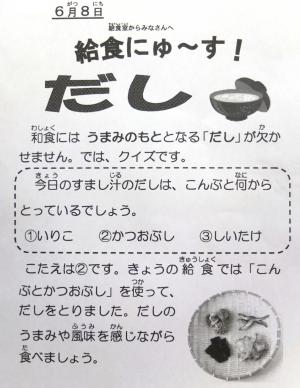 6月8日
給食室からみなさんへ
給食にゅ～す！
だし
和食には うまみのもととなる「だし」が欠か
せません。では、クイズです。
今日のすまし汁のだしは、こんぶと何から
とっているでしょう。
①いりこ ②かつおぶし ③しいたけ
こたえは②です。きょうの給食では「こん
ぶとかつおぶし」を使って、
だしをとりました。だしの
うまみや風味を感じながら
食べましょう。